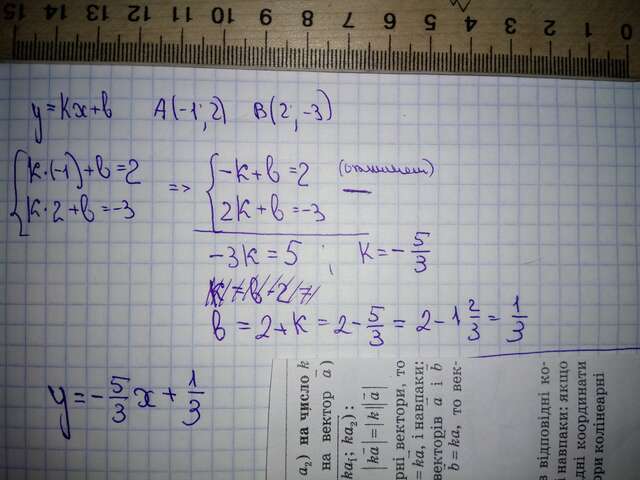 15 14 13 12 11 10 9 8 7 6 5 4 3 2 1 0
y=kx+b A(-1;2) B(2;-3)
{k·(-1)+b=2 => {-k+b=2
k·2+b=-3 2k+b=-3
-3k=5; k=-5/3
b=2+k=2-5/3=2-1 2/3=1/3
y=-5/3x+1/3
a₂) на число k
на вектор a)
ka₁; ka₂):
|ka|=|k||a|
рні вектори, то
=ka, і навпаки:
векторів a і b
b=ka, то век-
в відповідні ко-
і навпаки: якщо
дні координати
ори колінеарні